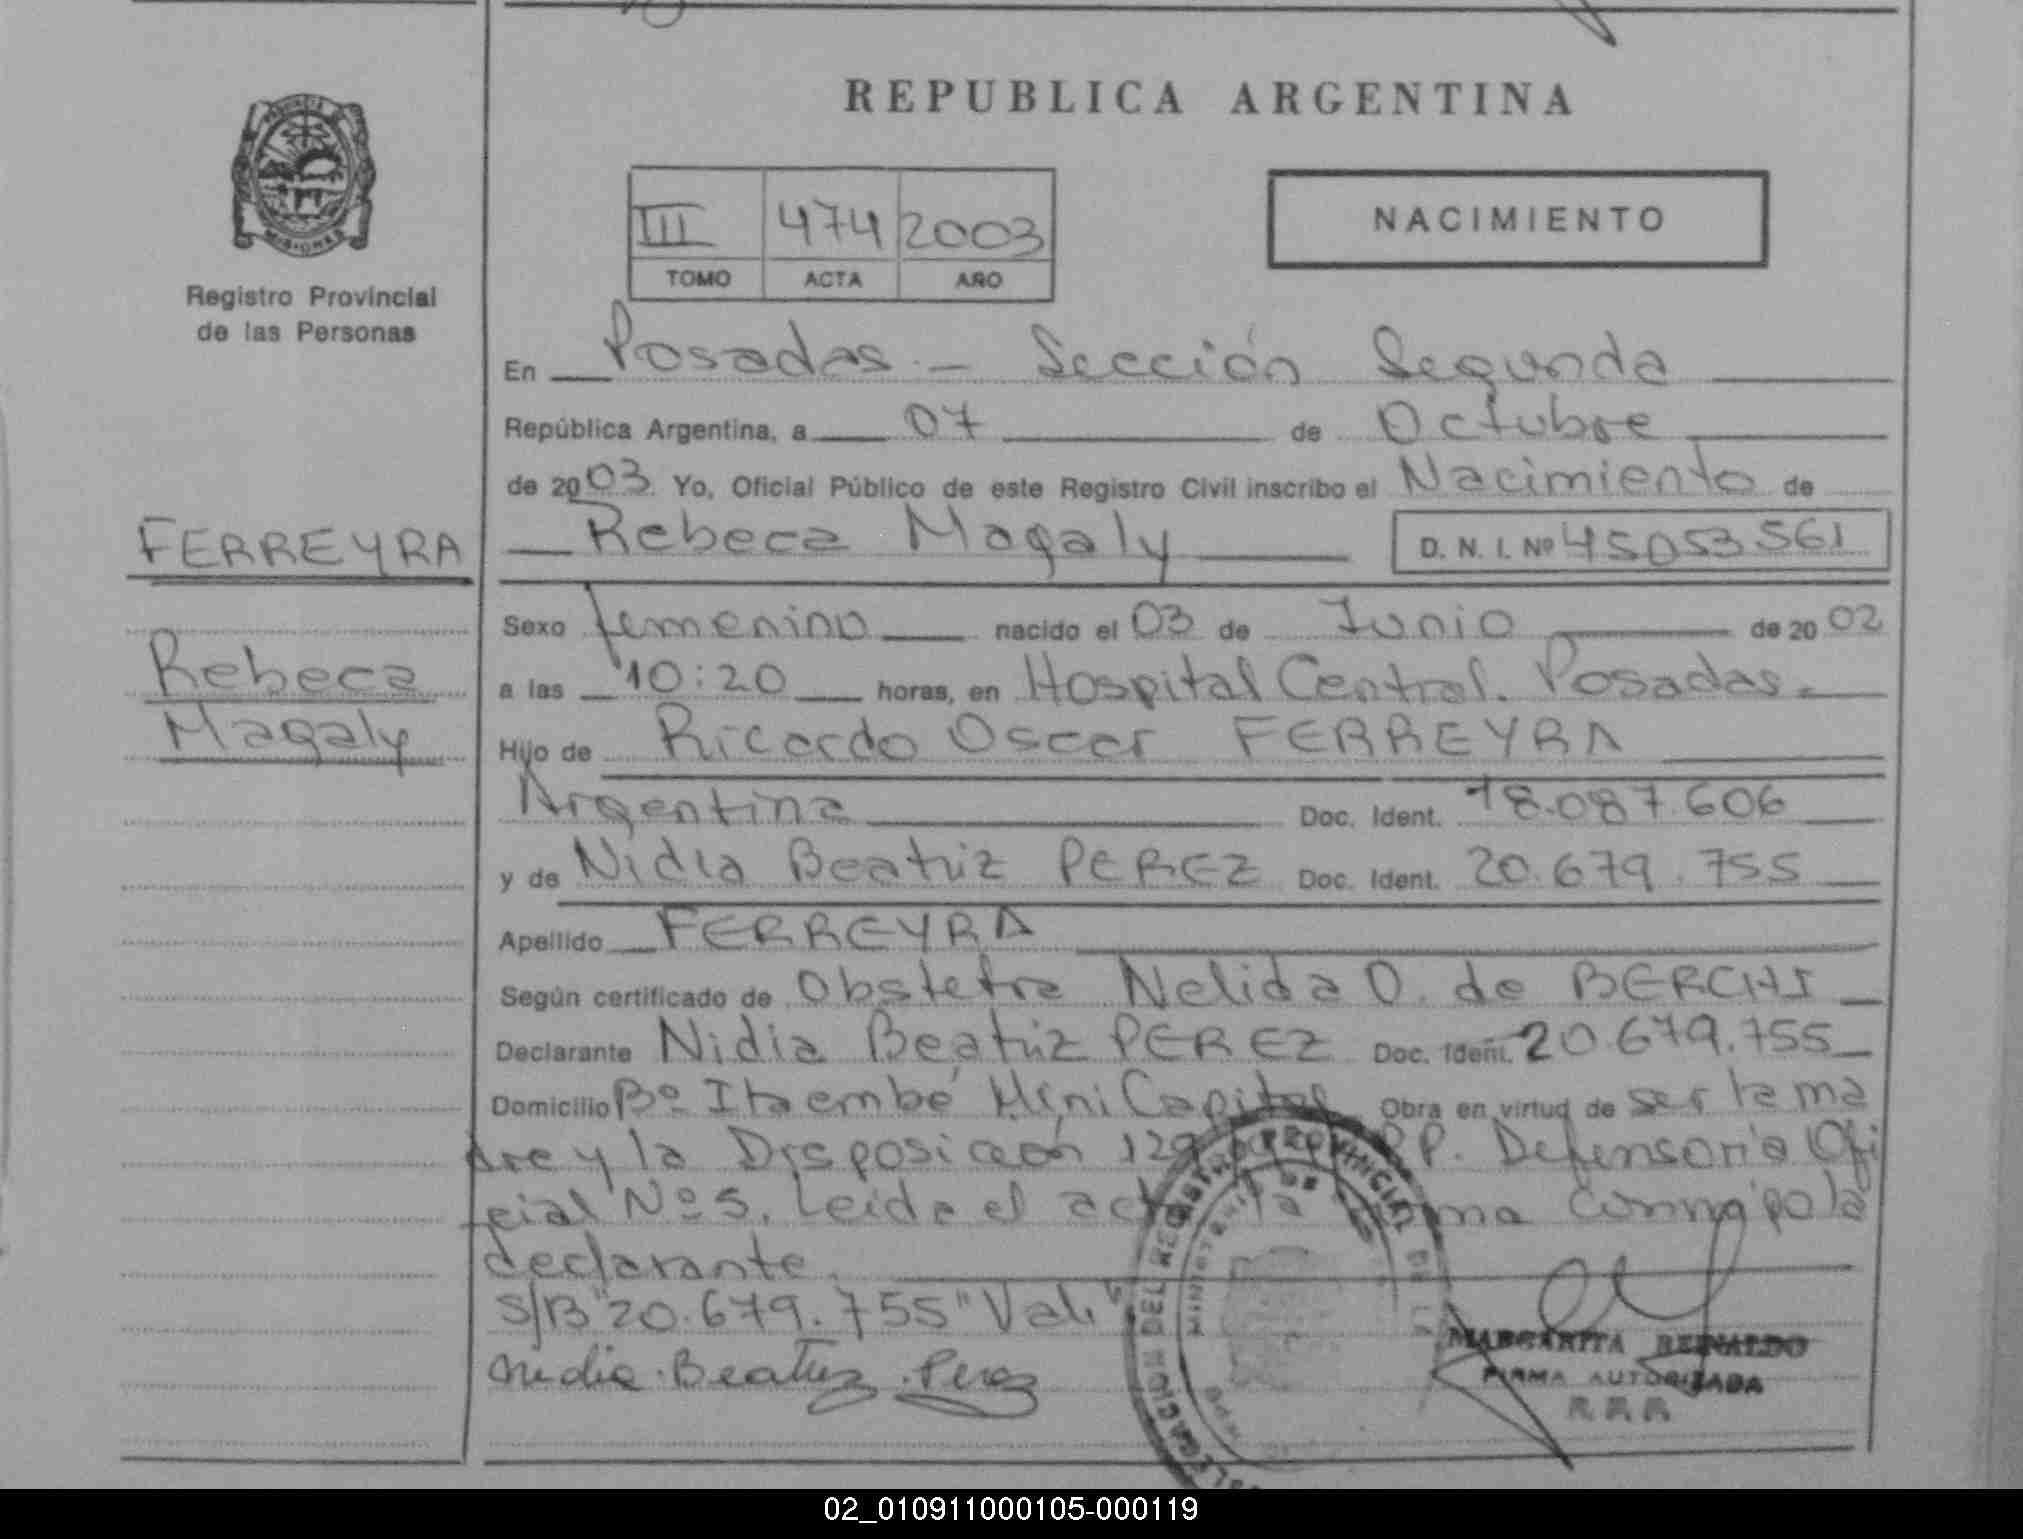 REPUBLICA ARGENTINA
PROVINCIA
MISIONES
Registro Provincial
de las Personas
III 474 2003
TOMO ACTA AÑO
NACIMIENTO
En Posadas - Sección Segunda
República Argentina, a 07 de Octubre
de 2003. Yo, Oficial Público de este Registro Civil inscribo el Nacimiento de
Rebeca Magaly D. N. I. Nº 45053561
FERREYRA
Rebeca
Magaly
Sexo femenino nacido el 03 de Junio de 2002
a las 10:20 horas, en Hospital Central. Posadas.-
Hijo de Ricardo Oscar FERREYRA
Argentina Doc. Ident. 18.087.606
y de Nidia Beatriz PEREZ Doc. Ident. 20.679.755
Apellido FERREYRA
Según certificado de Obstetra Nelida O. de BERCHI
Declarante Nidia Beatriz PEREZ Doc. Ident. 20.679.755
Domicilio Bº Itaembé Mini Capital Obra en virtud de ser la ma
dre y la Disposición P. Defensoria Ofi
cial Nº 5. Leida el la
declarante.
S/B "20.679.755" Vale
Nidia Beatriz Perez
DELEGACION DEL REGISTRO PROVINCIAL DE
MARGARITA REINALDO
FIRMA AUTORIZADA
02_010911000105-000119